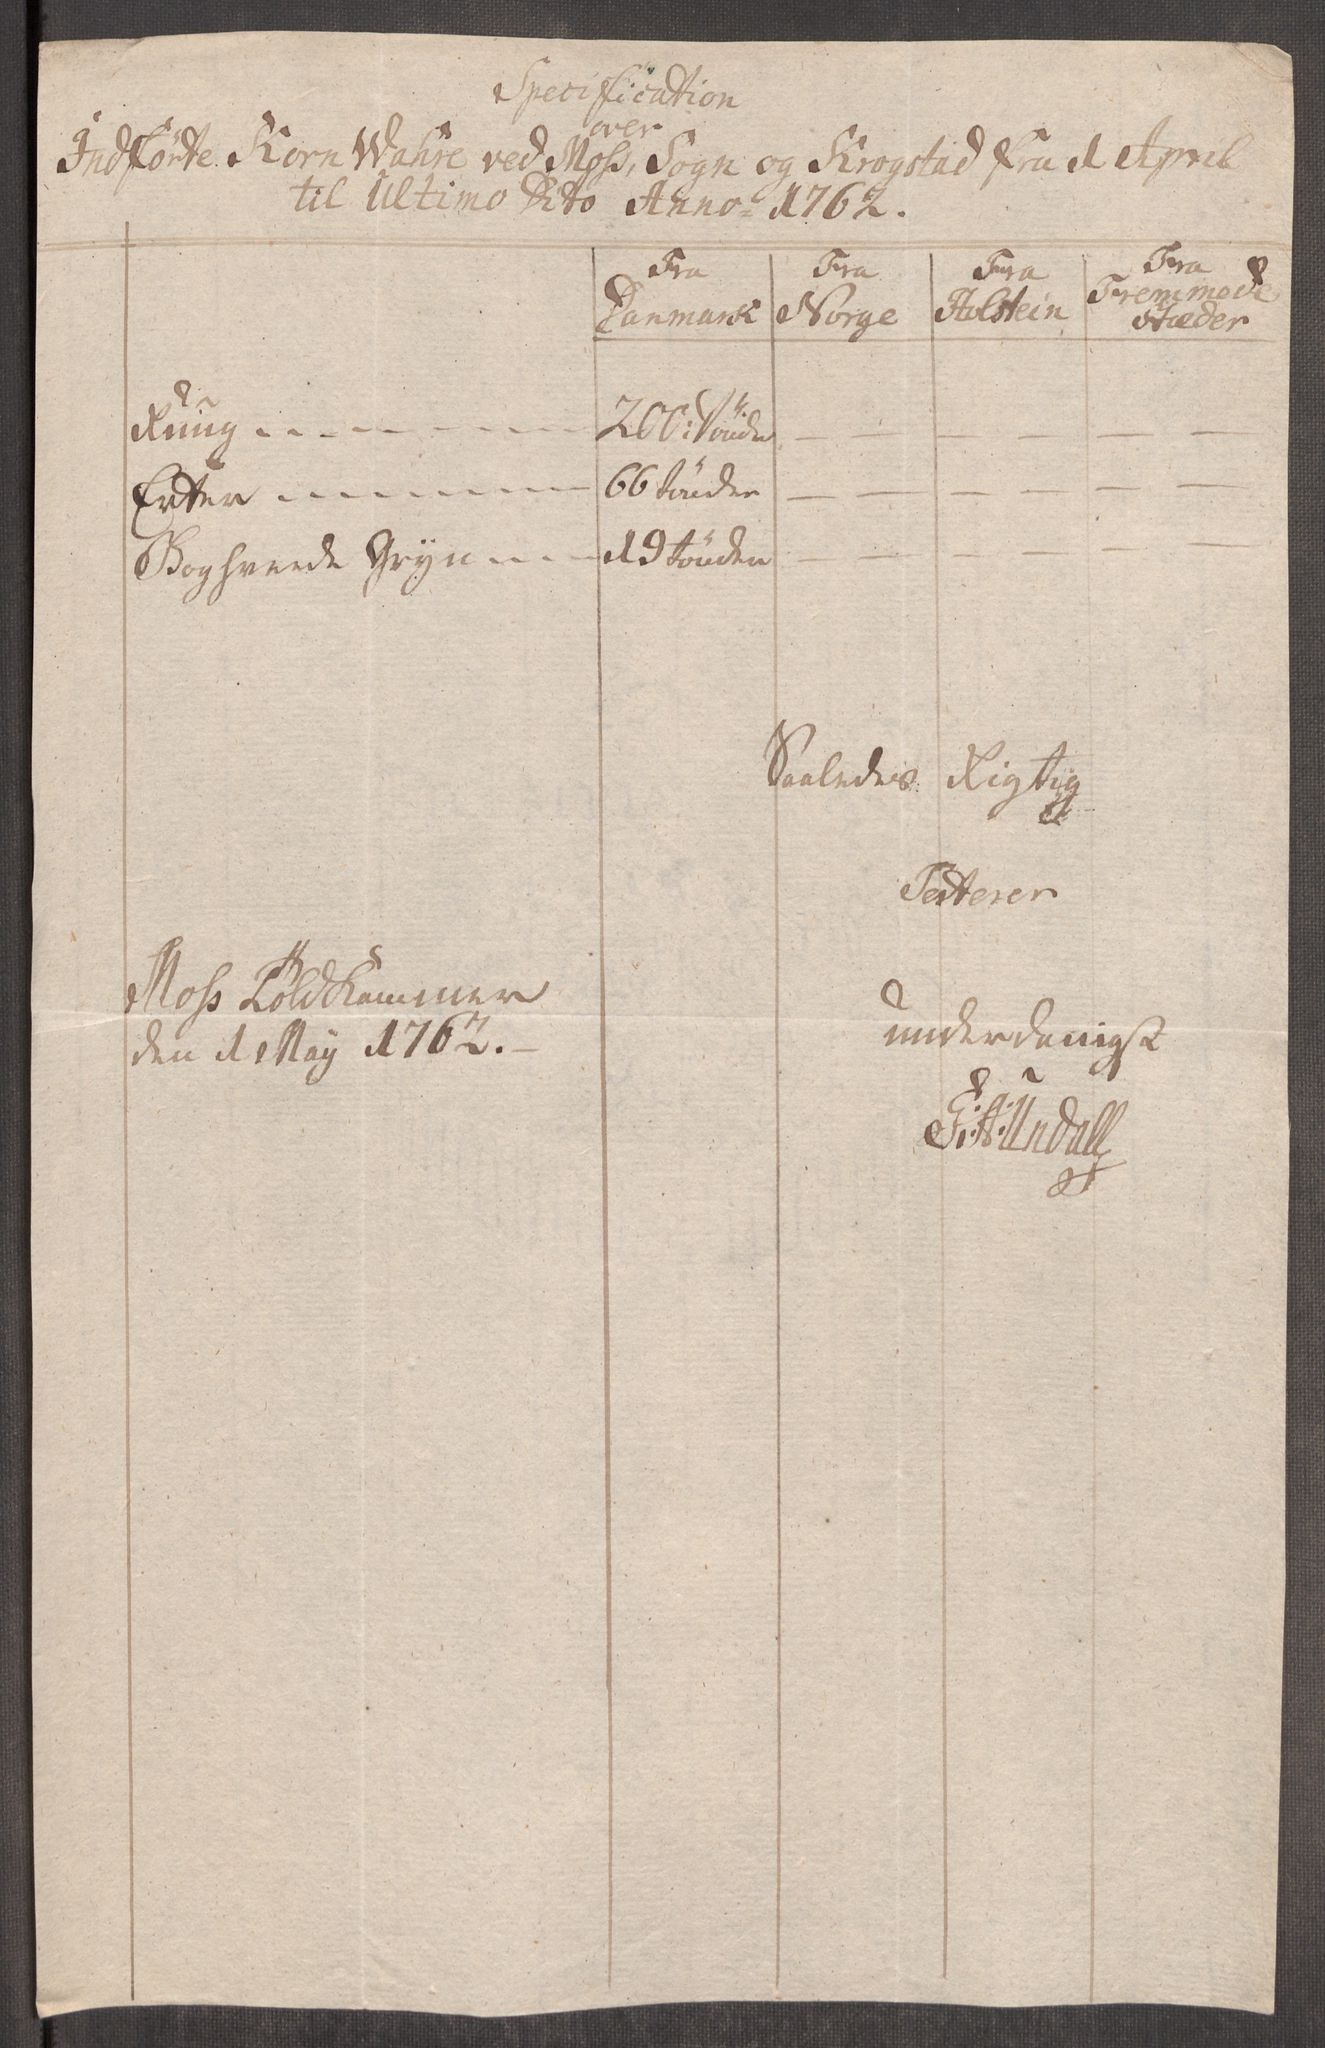 Specification
over
Indførte Korn Wahre ved Moss, Sogn og Krogstad fra 1 April
til Ultimo Dito Anno 1762.
Fra Danmark Fra Norge Fra Holstein Fra Fremmede Stæder
Ruug - - - - - - 200: Tønder — — — — — —
Erter - - - - - - 66 tønder — — — — — —
Boghveede Gryn - - - 19 tønder — — — — — —
Saaledes Rigtig
Testerer
Moss Toldkammer
den 1 May 1762. -
underdanigst
F: A: Undall